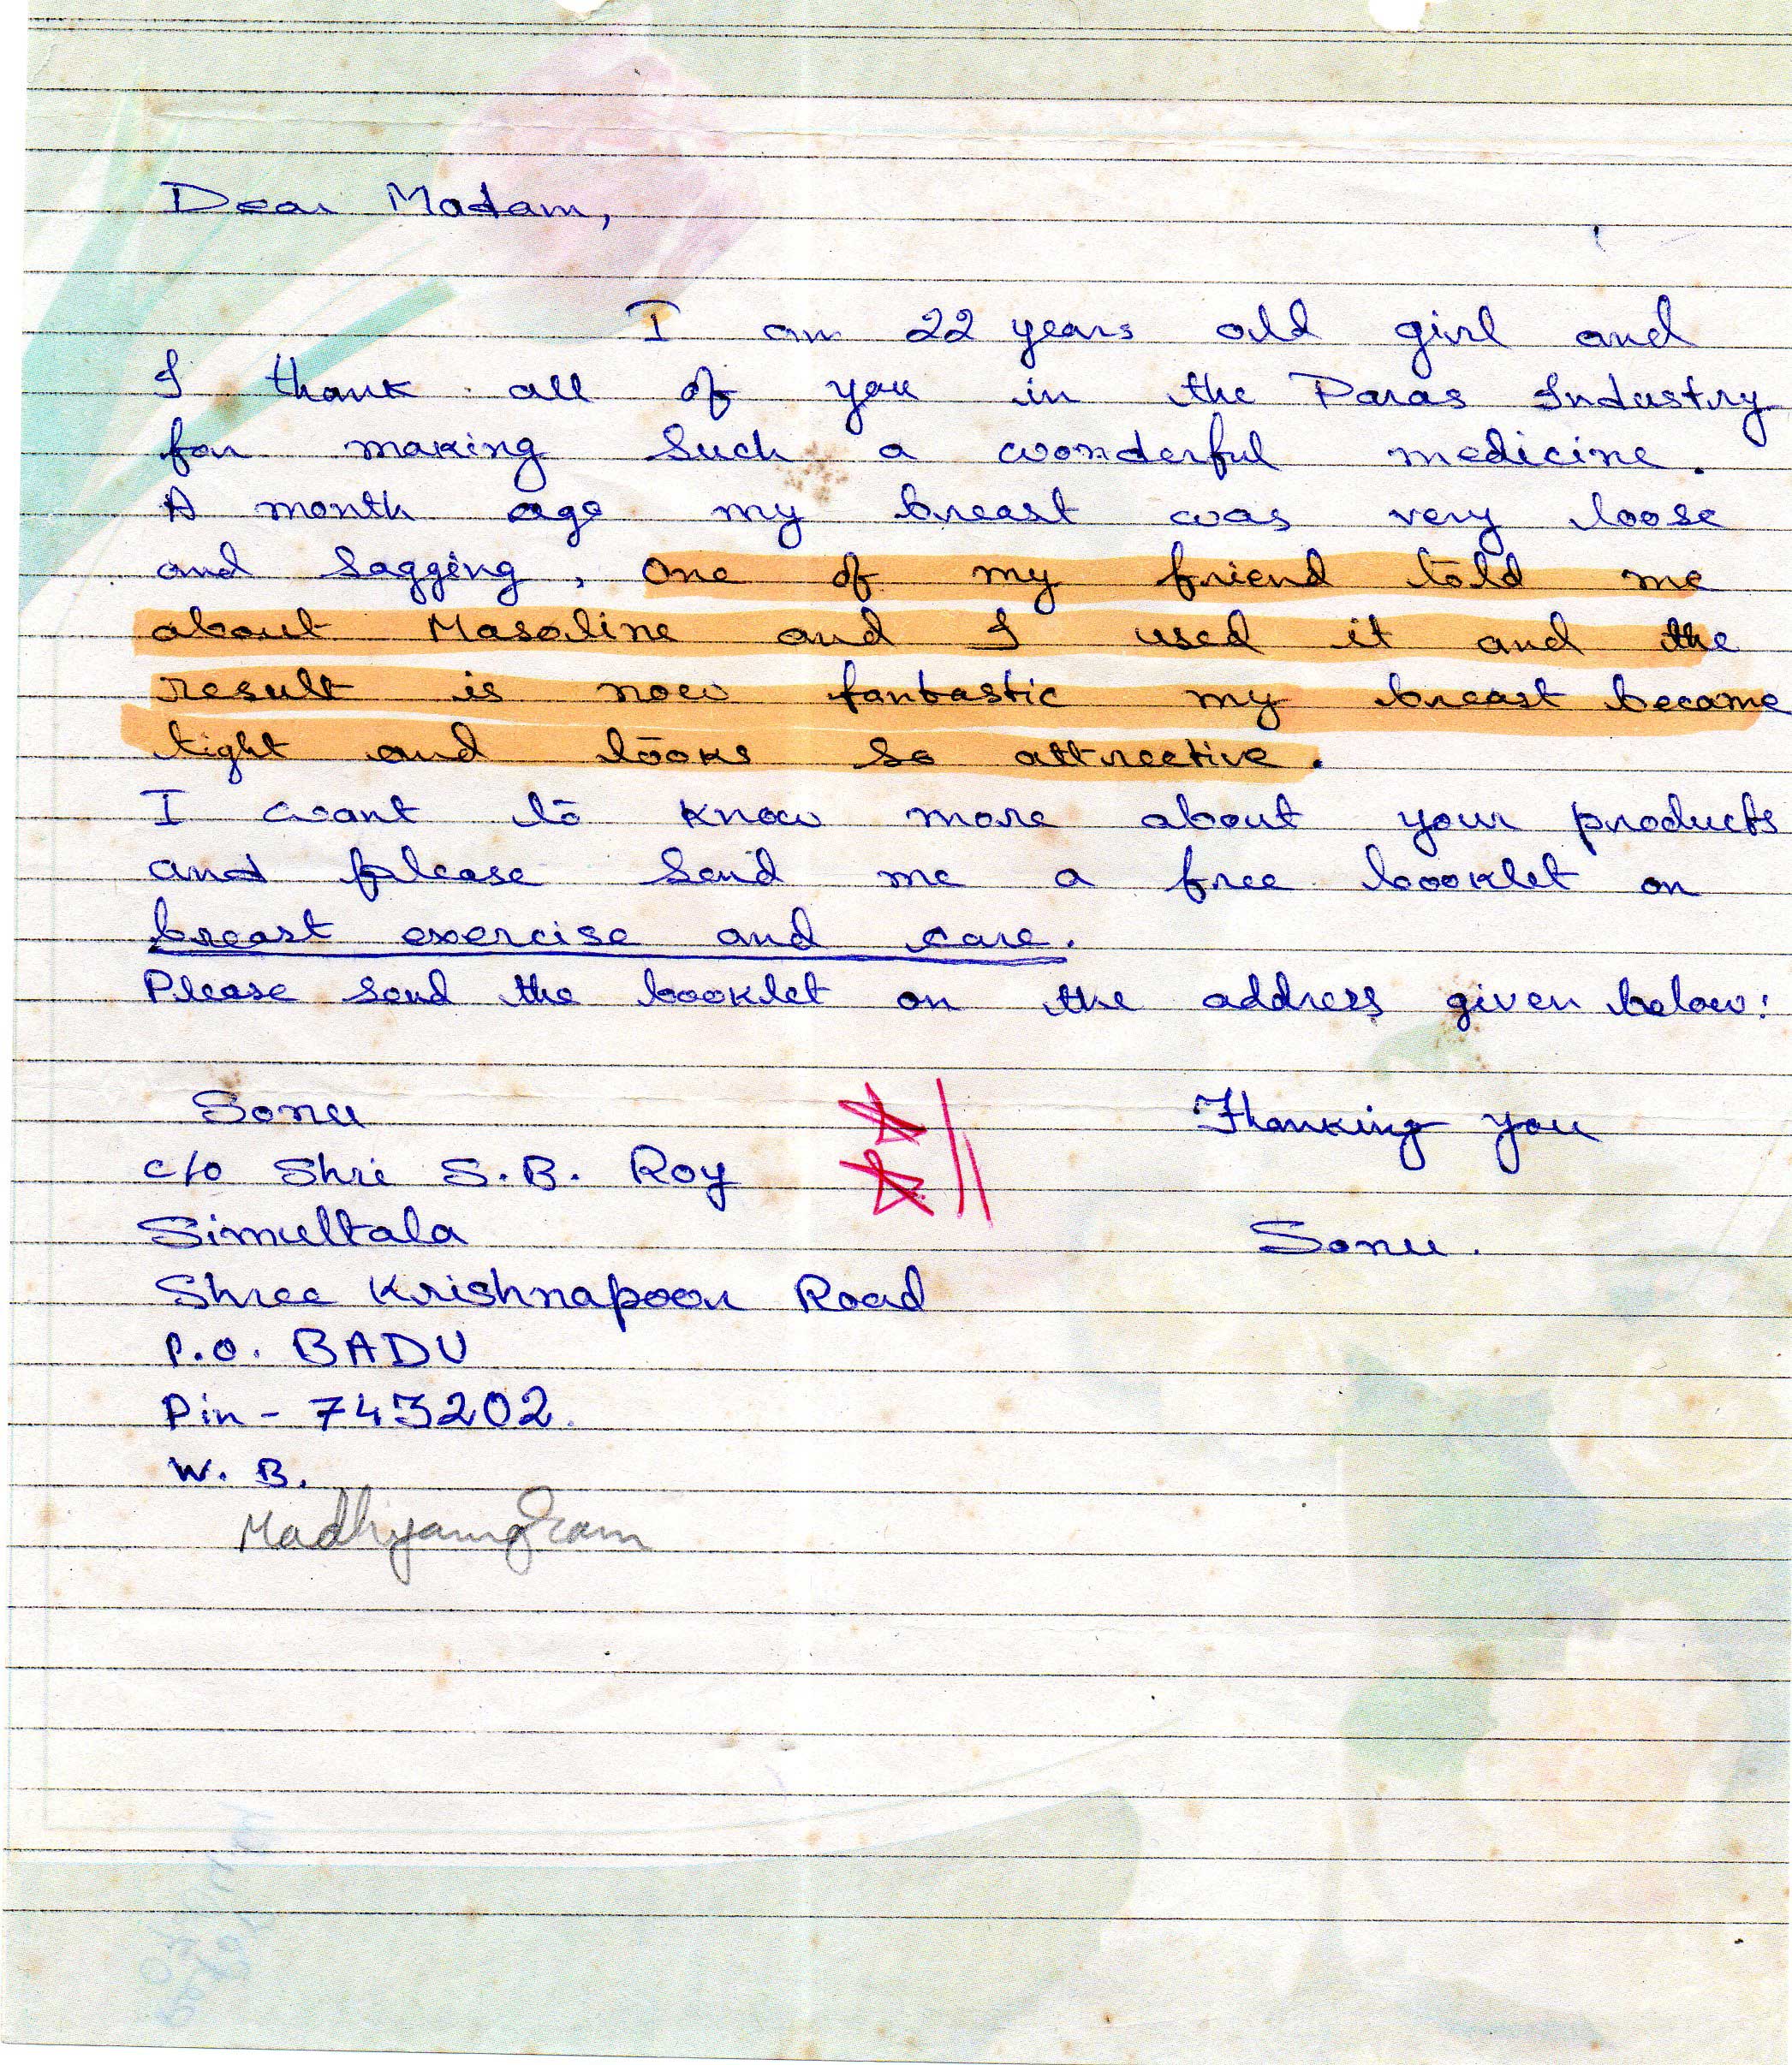 Dear Madam,
I am 22 years old girl and
I thank all of you in the Paras Industry
for making such a wonderful medicine.
A month ago my breast was very loose
and sagging, one of my friend told me
about Masoline and I used it and the
result is now fantastic my breast became
tight and looks so attrective.
I want to know more about your products
and please send me a free booklet on
breast exercise and care.
Please send the booklet on the address given below:
Sonu
c/o Shri S.B. Roy
Simultala
Shree Krishnapoor Road
P.O. BADU
Pin - 743202.
W. B.
Madhyamgram
Thanking you
Sonu.